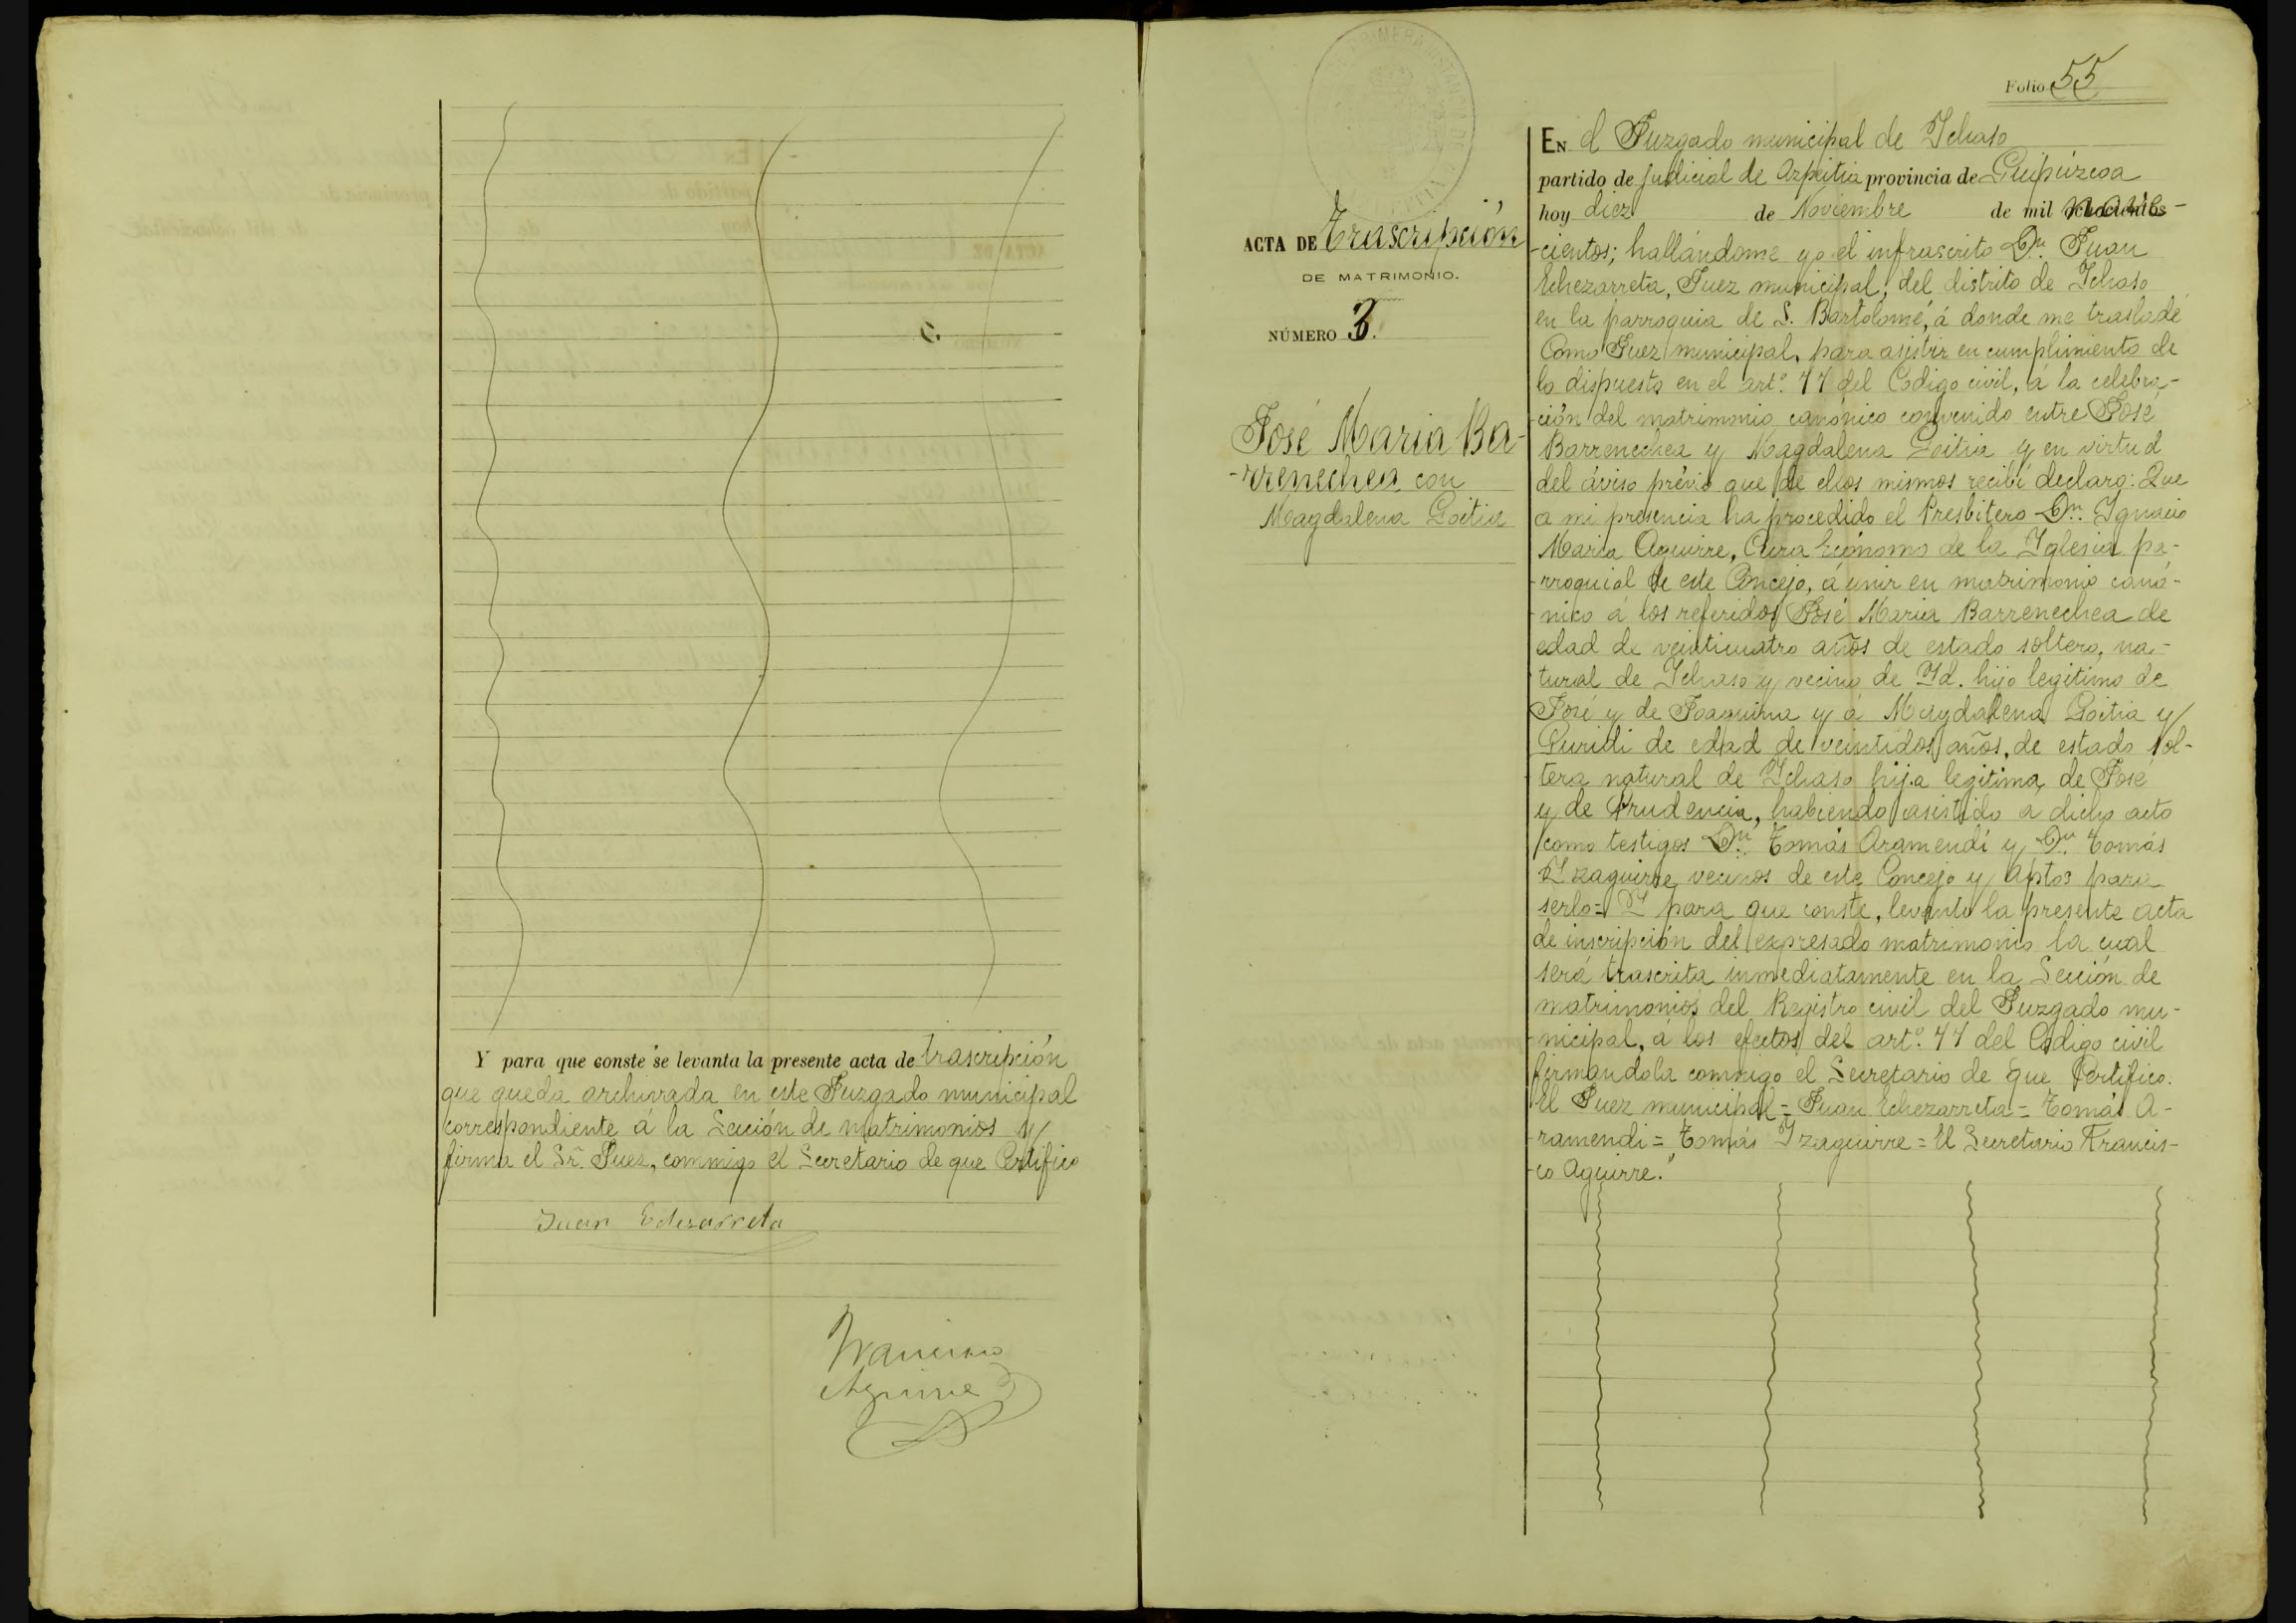 Y para que conste se levanta la presente acta de trascripción
que queda archivada en este Juzgado municipal
correspondiente á la Sección de matrimonios y
firma el Sr. Juez, conmigo el Secretario de que Certifico
Juan Echezarreta
Francisco
Aguirre
Folio 55
ACTA DE Trascripción
DE MATRIMONIO.
NÚMERO 3.
José Maria Ba-
-rrenechea con
Magdalena Goitia
EN el Juzgado municipal de Ichaso
partido de judicial de Azpeitia provincia de Guipúzcoa
hoy diez de Noviembre de mil nove-
-cientos; hallándome yo el infrascrito Dn. Juan
Echezarreta, Juez municipal, del distrito de Ichaso
en la parroquia de S. Bartolomé, á donde me trasladé
Como Juez municipal, para asistir en cumplimiento de
lo dispuesto en el artº. 77 del Codigo civil, á la celebra-
-ción del matrimonio canónico convenido entre José
Barrenechea y Magdalena Goitia y en virtud
del áviso prévio que de ellos mismos recibí declaro: Que
a mi presencia ha procedido el Presbitero Dn. Ignacio
Maria Aguirre, Cura Ecónomo de la Iglesia pa-
-rroquial de este Concejo, á unir en matrimonio canó-
-nico á los referidos José Maria Barrenechea de
edad de veinticuatro años de estado soltero, na-
-tural de Ichaso y vecino de Id. hijo legitimo de
José y de Joaquina y á Magdalena Goitia y
Guridi de edad de veintidos años, de estado sol-
tera natural de Ichaso hija legitima de José
y de Prudencia, habiendo asistido á dicho acto
como testigos Dn. Tomás Aramendi y Dn. Tomás
Izaguirre, vecinos de este Concejo y aptos para
serlo= Y para que conste, levanto la presente acta
de inscripción del expresado matrimonio la cual
será trascrita inmediatamente en la Sección de
matrimonios del Registro civil del Juzgado mu-
-nicipal, á los efectos del artº. 77 del Codigo civil
firmandola conmigo el Secretario de que Certifico.
El Juez municipal= Juan Echezarreta= Tomás A-
-ramendi= Tomás Izaguirre= El Secretario Francis-
-co Aguirre."